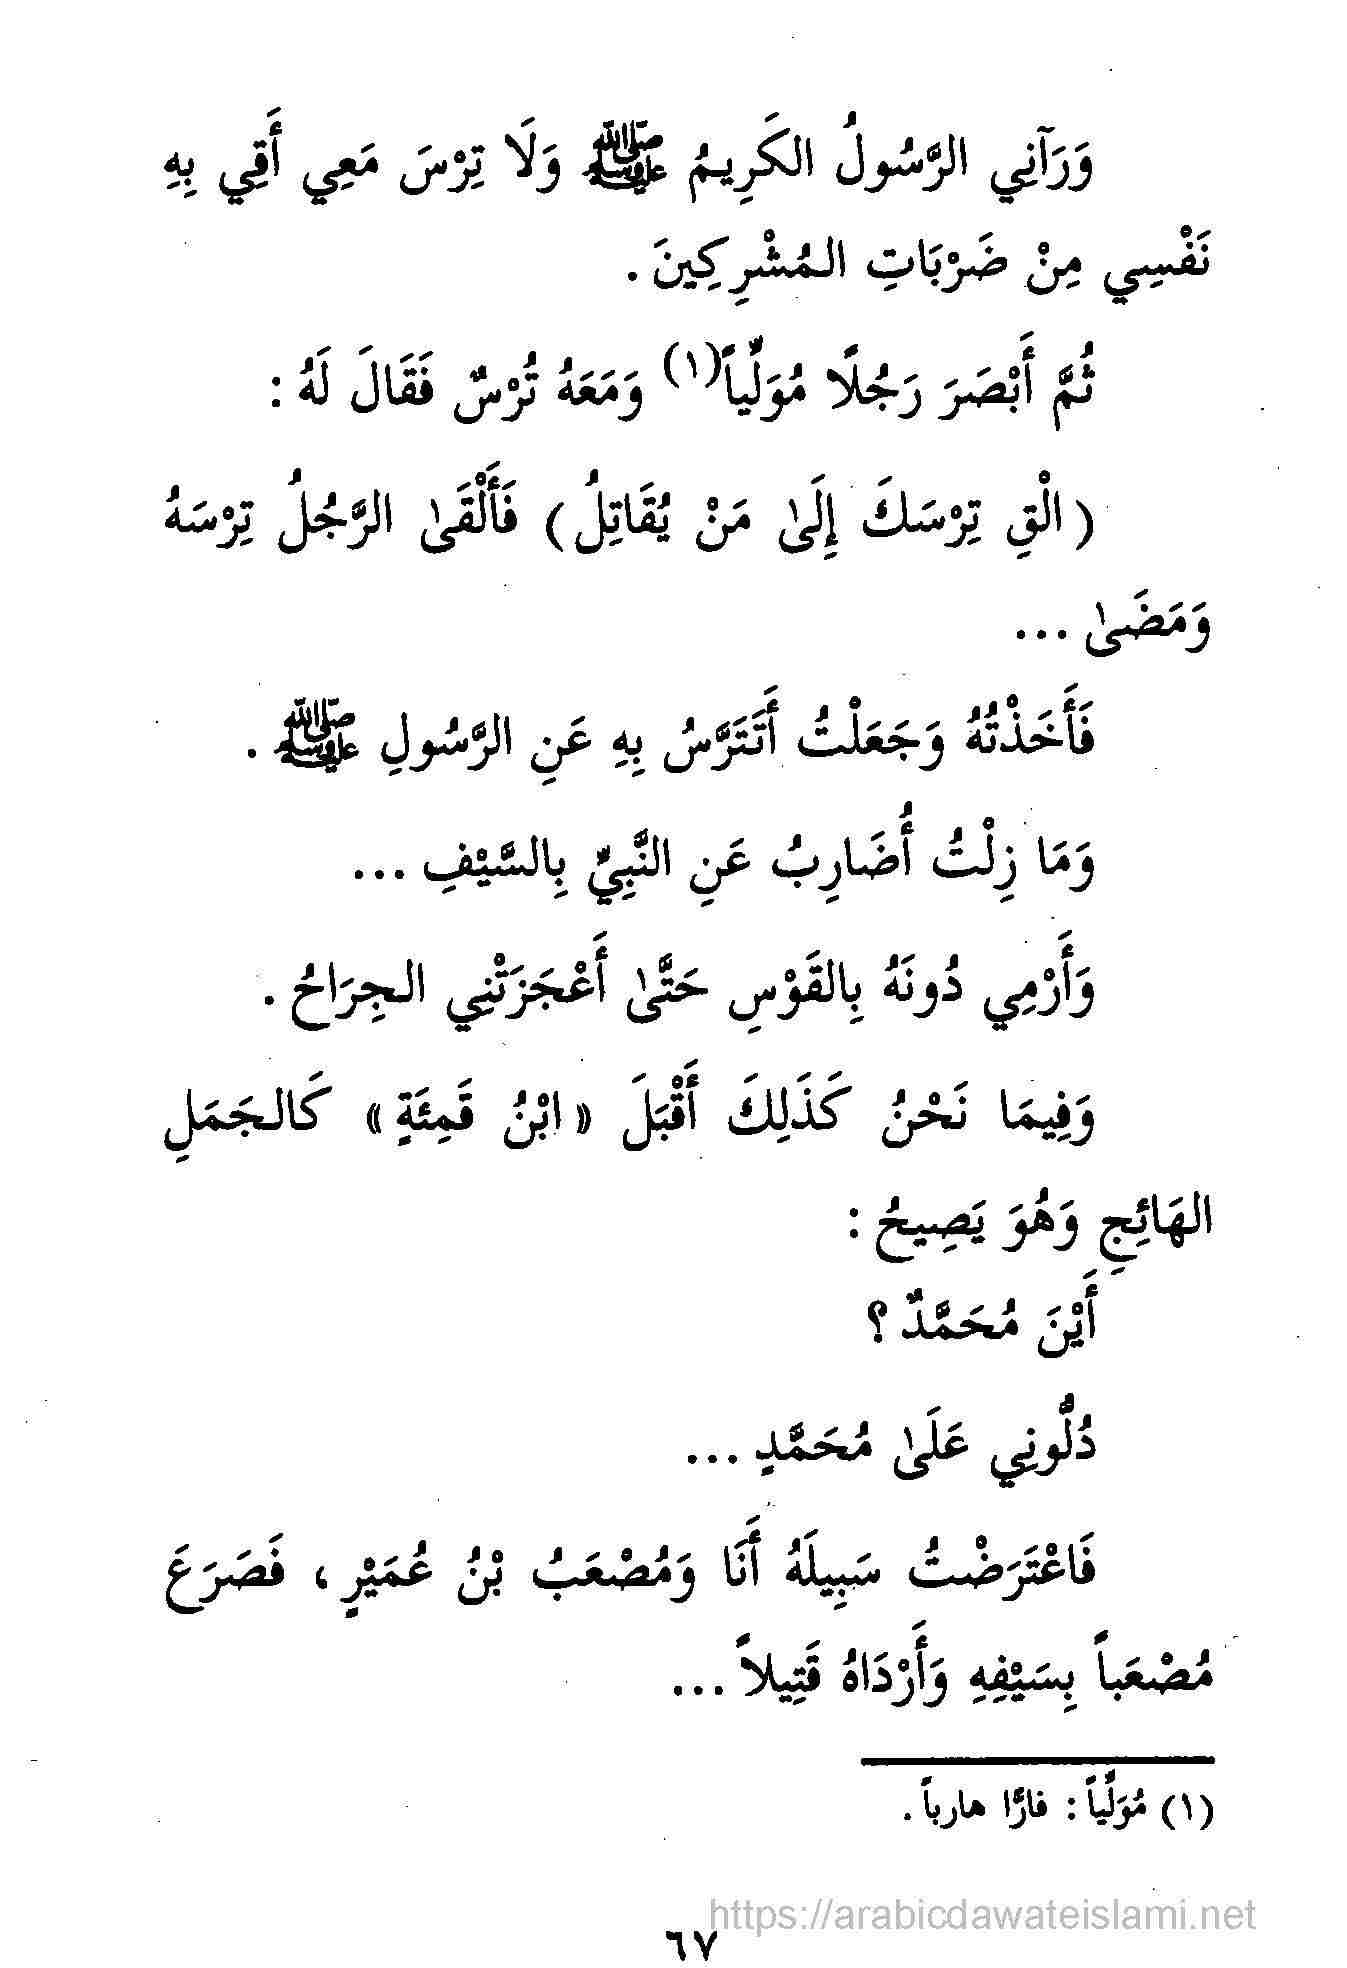 وَرَآنِي الرَّسُولُ الكَرِيمُ ﷺ وَلَا تِرْسَ مَعِي أَقِي بِهِ
نَفْسِي مِنْ ضَرْبَاتِ المُشْرِكِينَ .
ثُمَّ أَبْصَرَ رَجُلًا مُوَلِّياً(١) وَمَعَهُ تُرْسٌ فَقَالَ لَهُ :
( الْقِ تِرْسَكَ إِلَىٰ مَنْ يُقَاتِلُ ) فَأَلْقَىٰ الرَّجُلُ تِرْسَهُ
وَمَضَىٰ ...
فَأَخَذْتُهُ وَجَعَلْتُ أَتَتَرَّسُ بِهِ عَنِ الرَّسُولِ ﷺ .
وَمَا زِلْتُ أُضَارِبُ عَنِ النَّبِيِّ بِالسَّيْفِ ...
وَأَرْمِي دُونَهُ بِالقَوْسِ حَتَّىٰ أَعْجَزَتْنِي الجِرَاحُ .
وَفِيمَا نَحْنُ كَذَلِكَ أَقْبَلَ « ابْنُ قَمِئَةٍ » كَالجَمَلِ
الهَائِجِ وَهُوَ يَصِيحُ :
أَيْنَ مُحَمَّدٌ ؟
دُلُّونِي عَلَىٰ مُحَمَّدٍ ...
فَاعْتَرَضْتُ سَبِيلَهُ أَنَا وَمُصْعَبُ بْنُ عُمَيْرٍ ، فَصَرَعَ
مُصْعَباً بِسَيْفِهِ وَأَرْدَاهُ قَتِيلاً ...
(١) مُوَلِّياً : فارًّا هارباً .
https://arabicdawateislami.net
٦٧